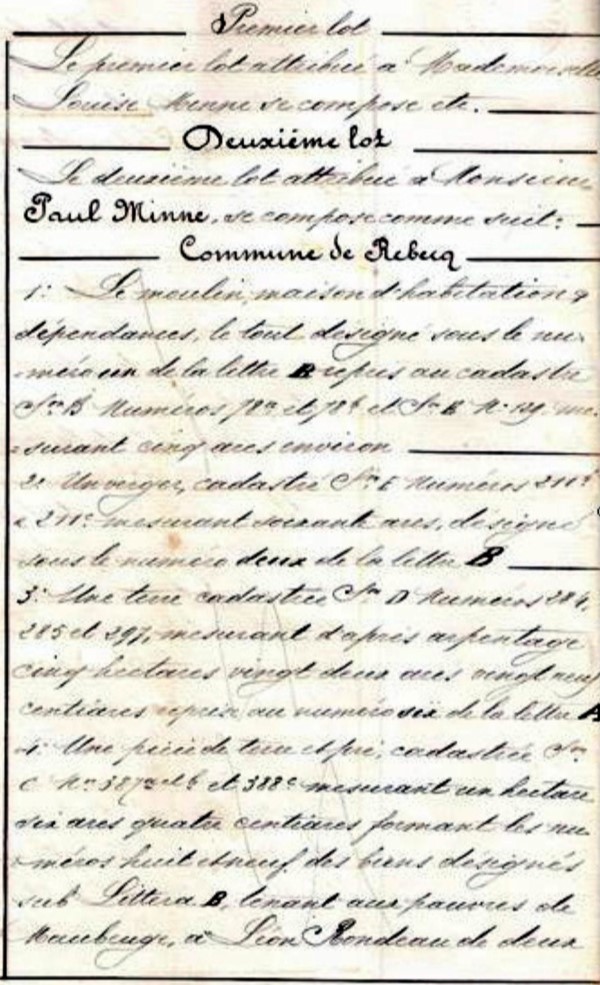 Premier lot
Le premier lot attribué à Mademoiselle
Louise Minne se compose etc.
Deuxième lot
Le deuxième lot attribué à Monsieur
Paul Minne, se compose comme suit:
Commune de Rebecq
1: Le moulin, maison d'habitation &
dépendances, le tout désigné sous le nu-
méro un de la lettre B repris au cadastre
Son B Numéros 78a et 78b et Son E No 139 me-
surant cinq ares environ
2: Un verger, cadastré Son E Numéros
& 211c mesurant soixante ares, désigné
sous le numéro deux de la lettre B
3: Une terre cadastrée Son D Numéros 284,
285 et 297, mesurant d'après arpentage
cinq hectares vingt deux ares vingt neuf
centiares repris au numéro six de la lettre A
4: Une pièce de terre et pré, cadastrée Son
C Nos 387a et b et 388c mesurant un hectare
six ares quatre centiares formant les nu-
méros huit et neuf des biens désignés
sub Littera B, tenant aux pauvres de
Maubeuge, à Léon Rondeau de deux